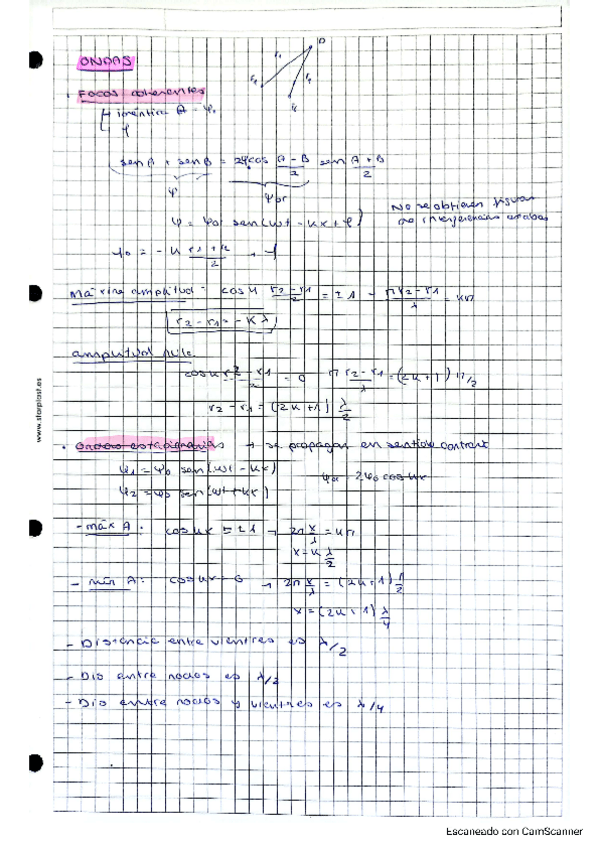 ONDAS
• Focos coherentes
idéntica A = φ₀
φ
sen A + sen B = 2 cos A - B / 2 sen A + B / 2
Ψ
Ψor
Ψ = Ψor sen (wt - kx + φ)
No se obtienen figuras
de interferencias
φ₀ = - k r1 + r2 / 2
Máxima amplitud = cos k r2 - r1 / 2 = ±1 → π r2 - r1 / λ = kπ
r2 - r1 = kλ
amplitud nula.
cos k r2 - r1 / 2 = 0 π r2 - r1 / λ = (2k + 1) π/2
r2 - r1 = (2k + 1) λ/2
• Ondas estacionarias → se propagan en sentido contrari
Ψ1 = Ψ0 sen (wt - kx)
Ψor = 2Ψ0 cos kx
Ψ2 = Ψ0 sen (wt + kx)
- máx A : cos kx = ±1 → 2π x/λ = kπ
x = k λ/2
- mín A : cos kx = 0 → 2π x/λ = (2k + 1) π/2
x = (2k + 1) λ/4
- Distancia entre vientres es λ/2
- Dis entre nodos es λ/2
- Dis entre nodos y vientres es λ/4
www.starplast.es
Escaneado con CamScanner